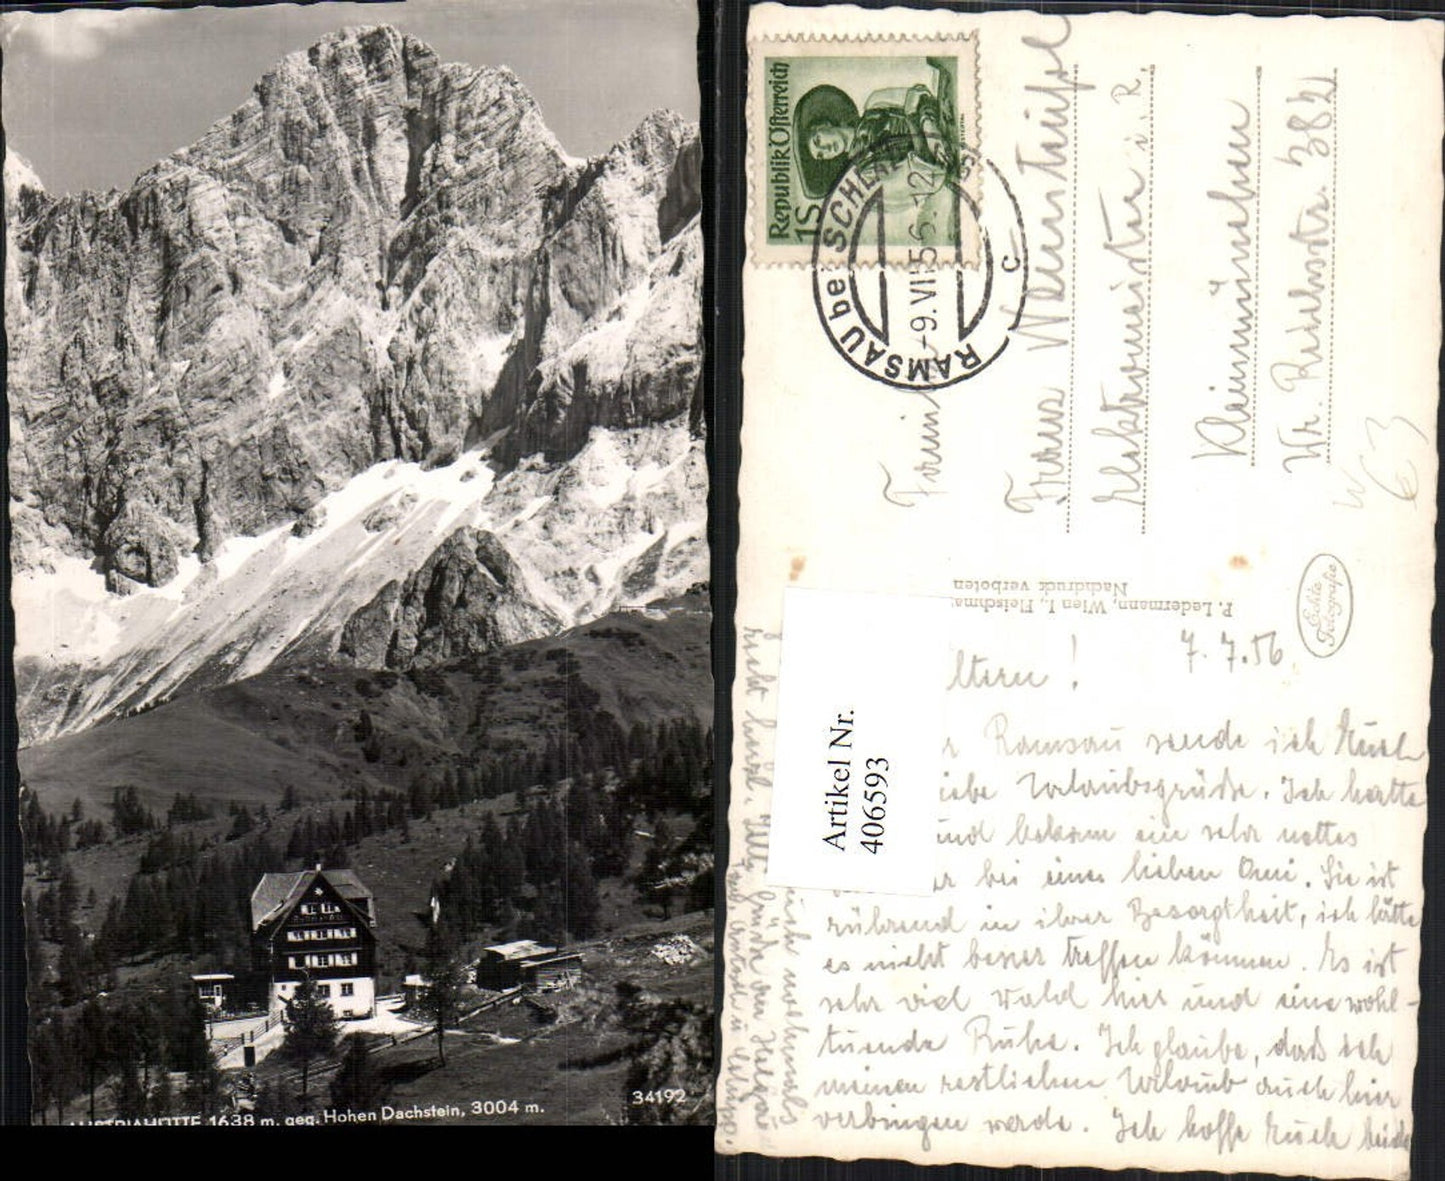 AUSTRIAHÜTTE 1638 m. geg. Hohen Dachstein, 3004 m.
34192
Republik Österreich
1S
RAMSAU bei SCHLADMING
-9.VII.56.-12
RAMSAU
C
Franz
Elektromeister i. R.
Kleinmünchen
Wr. Reichsstr. 382
W
63
P. Ledermann, Wien I., Fleischma
Nachdruck verboten
Echte Fotografie
7.7.56
ltern!
Ramsau sende ich Euch
iebe Urlaubsgrüße. Ich hatte
und bekam ein sehr nettes
er bei einer lieben Omi. Sie ist
rührend in ihrer Besorgtheit, ich hätte
es nicht besser treffen können. Es ist
sehr viel Wald hier und eine wohl-
tuende Ruhe. Ich glaube, daß ich
meinen restlichen Urlaub auch hier
verbringen werde. Ich hoffe Euch beide
recht herzl.
Artikel Nr.
406593